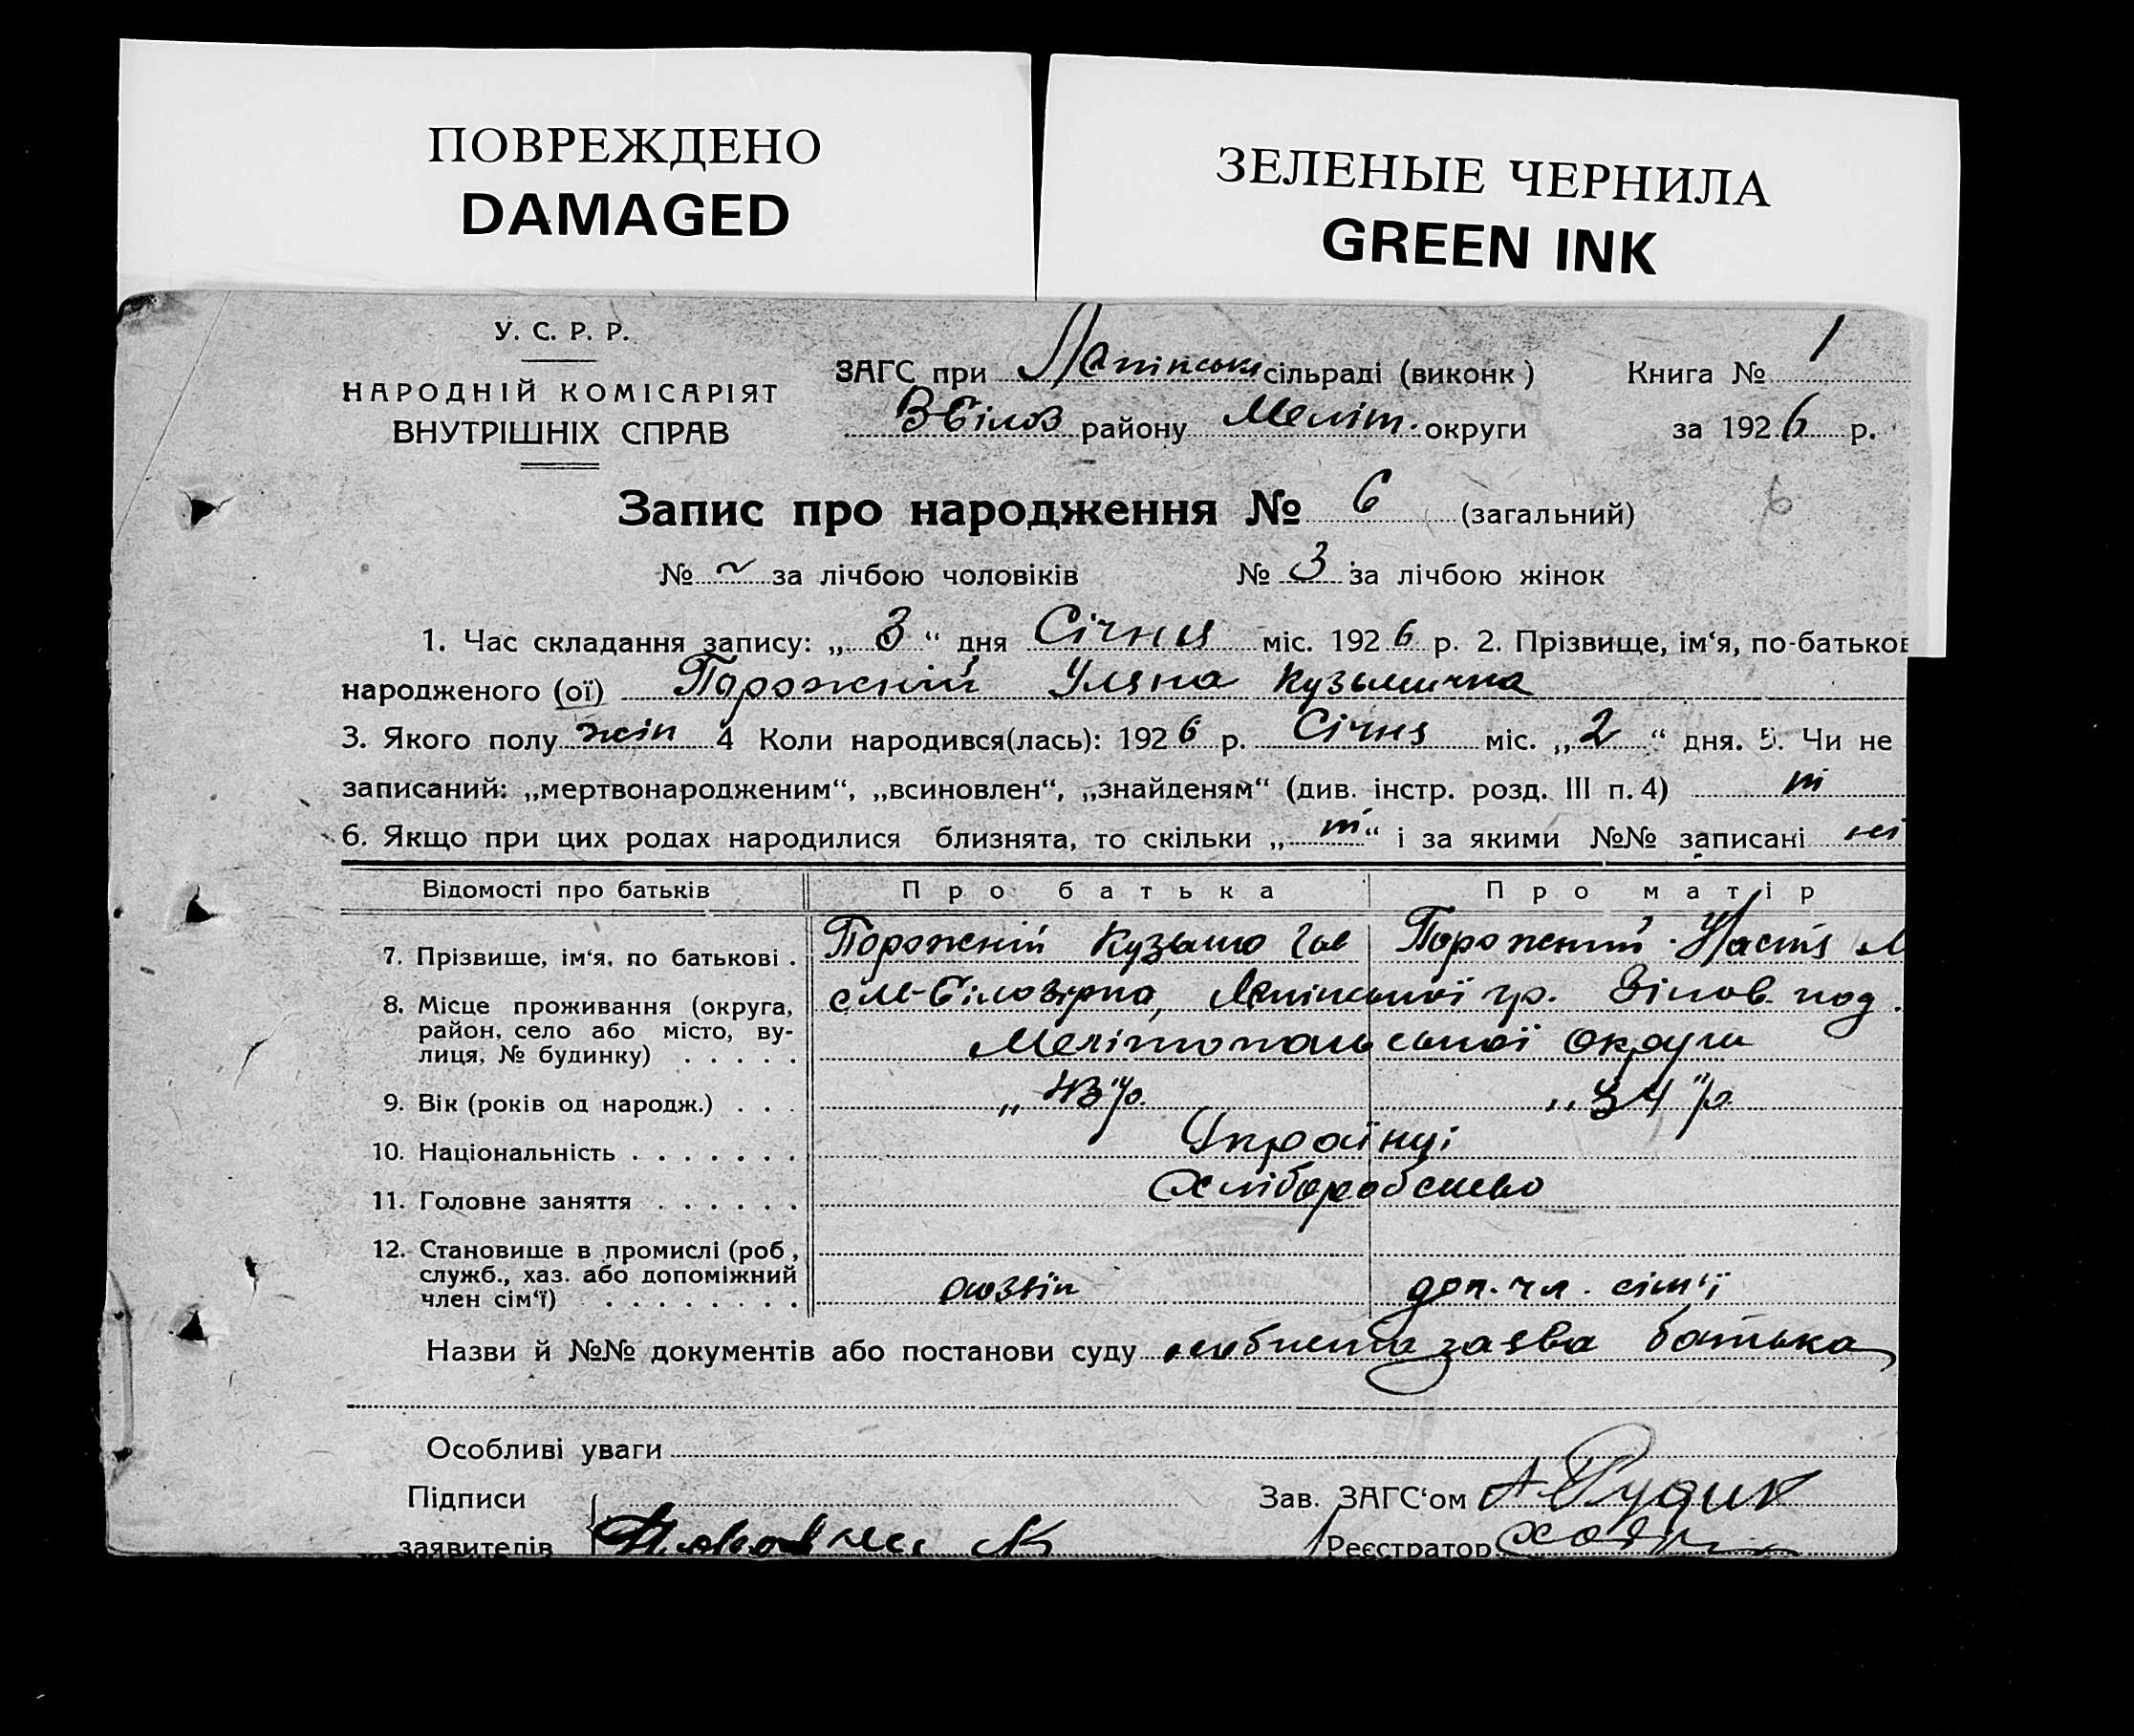 ПОВРЕЖДЕНО
DAMAGED
ЗЕЛЕНЫЕ ЧЕРНИЛА
GREEN INK
У. С. Р. Р.
НАРОДНІЙ КОМІСАРІЯТ
ВНУТРІШНІХ СПРАВ
ЗАГС при сільраді (виконк)
району Меліт. округи
Книга № 1
за 1926 р.
Запис про народження № 6 (загальний)
6
№ за лічбою чоловіків № 3 за лічбою жінок
1. Час складання запису: „3“ дня Січня міс. 1926 р. 2. Прізвище, ім‘я, по-батьков
народженого (ої) Порожній Уляна Кузьмична
3. Якого полу жін 4 Коли народився(лась): 1926 р. Січня міс. „2“ дня. 5. Чи не
записаний: „мертвонародженим“, „всиновлен“, „знайденям“ (див. інстр. розд. III п. 4)
6. Якщо при цих родах народилися близнята, то скільки „ “ і за якими №№ записані ні
Відомості про батьків Про батька Про матір
7. Прізвище, ім‘я, по батькові . Порожній Кузьма Порожній Настя М
8. Місце проживання (округа,
район, село або місто, ву-
лиця, № будинку) . . . . .
с М-Білозірка,
Мелітопольської округи
9. Вік (років од народж.) . . . „43“ р. „34“ р.
10. Національність . . . . . . . Українці
11. Головне заняття . . . . . . Хліборобство
12. Становище в промислі (роб,
служб., хаз. або допоміжний
член сім‘ї) . . . . . . . . доп. чл. сім'ї
Назви й №№ документів або постанови суду заява батька
Особливі уваги
Підписи
заявителів
Зав. ЗАГС‘ом
Реєстратор